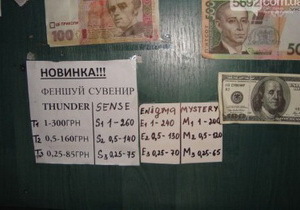 5692.com.ua
100
500
100
НОВИНКА!!!
ФЕНШУЙ СУВЕНИР
THUNDER SENSE ENIGMA MYSTERY
T1 1-300ГРН S1 1-260 E1 1-240 M1 1-200
T2 0,5-160ГРН S2 0,5-140 E2 0,5-130 M2 0,5-120
T3 0,25-85ГРН S3 0,25-75 E3 0,25-70 M3 0,25-65